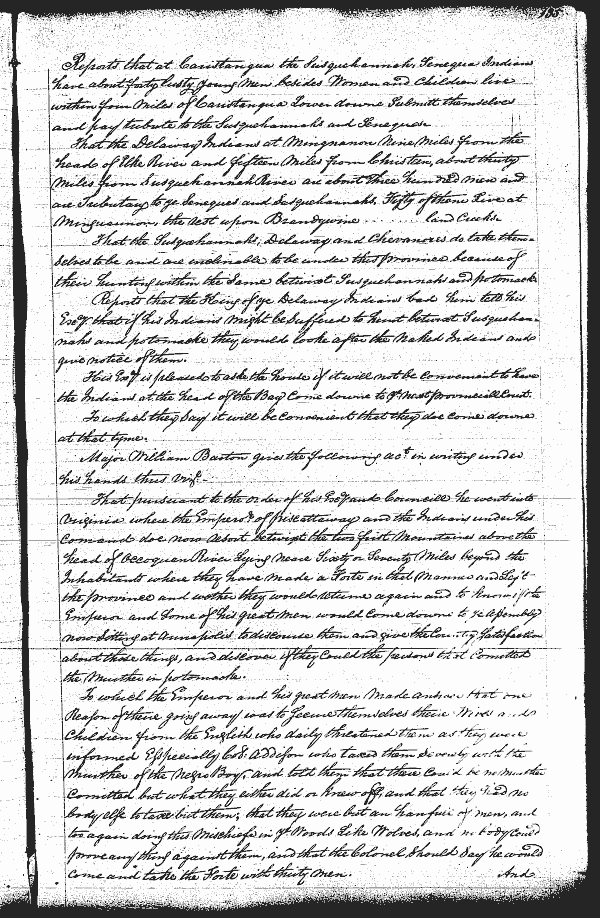 155
Reports that at Canistangua the Susquehannah, Senequa Indians
have about forty lusty young men besides Women and Children live
within four Miles of Canistangua Lower downe Submitt themselves
and pay tribute to the Susquehannahs and Seneques.
That the Delaway Indians at Minguanon Nine Miles from the
head of Elke River and fifteen Miles from Christien, about thirty
Miles from Susquehannah River are about three hundred men and
are tributary to ye Seneques and Susquehannahs, Fifty of them Live at
Minguannon, the rest upon Brandywine land Creeks.
That the Susquehannahs, Delaway and Chevanoris do take them-
selves to be and are inclinable to be under this Province because of
their hunting within the Same betwixt Susquehannah and potomack
Reports that the King of ye Delaway Indians bad him tell his
Excy. that if his Indians might be Suffered to hunt betwixt Susquehan-
nahs and potomacke they would looke after the Naked Indians and
give notice of them.
His Excy. is pleased to aske the house if it will not be convenient to have
the Indians at the head of the Bay Come downe to ye next provinciall Court.
To which they Say it will be convenient that they doe come downe
at that tyme.
Major William Barton gives the following acct. in writing under
his hands thus vizt.
That pursuant to the order of his Excy and Councill he went into
Virginia where the Emperor. of piscattaway and the Indians under his
Comand doe now abort betwixt the two first Mountaines above the
head of Occoquan River lying neare Sixty or Seventy Miles beyond the
Inhabitants where they have made a Forte in that Manner and Left
the province and wether they would returne again and to know if the
Emperor and Some of his great men would come downe to ye assembly
now Sitting at Annapolis to discourse them and give the Country Satisfaction
about those things, and discover if they could the persons that Comitted
the Murther in potomack.
To which the Emperor and his great men made answer that one
Reason of their going away was to Secure themselves their Wives and
Children from the English who daily threatened them as they were
informed Especially Col: Addison who taxed them Severely with the
Murther of the Negro Boy, and told them that there Could be no Murther
Comitted but what they either did or knew off, and that they had no
body else to taxe but them; that they were but an hanfull of men, and
to again doing this Mischiefe in ye Woods Like Wolves, and no body could
prove any thing against them, and that the Colonel Should Say he would
come and take the Forte with thirty men.
And